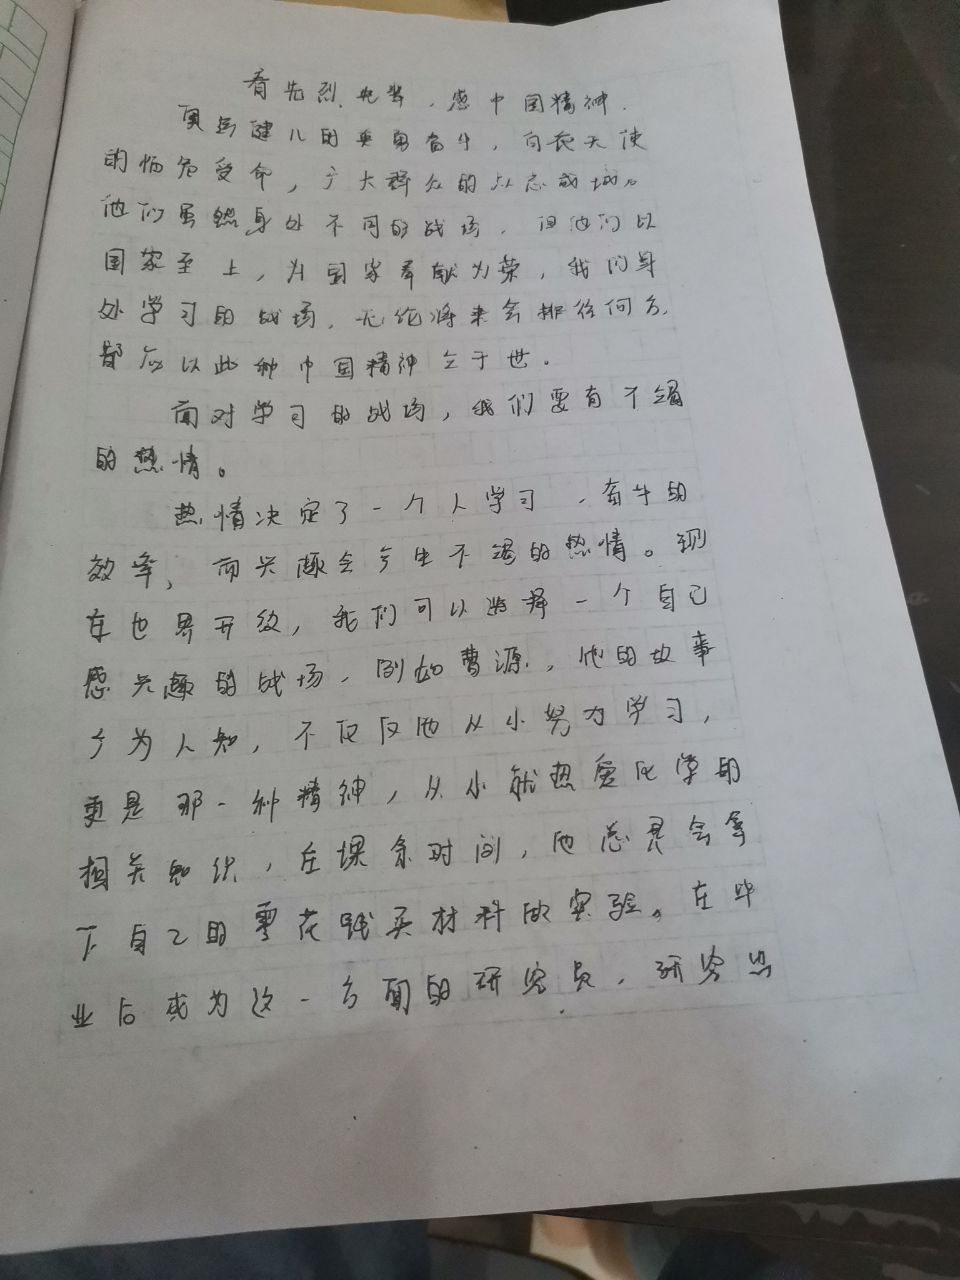 看先烈先辈，感中国精神．
奥运健儿的英勇奋斗，白衣天使
的临危受命，广大群众的众志成城。
他们虽然身处不同的战场，但他们以
国家至上，为国家奉献为荣，我们身
处学习的战场，无论将来会排径何方，
都应以此种中国精神立于世。
面对学习的战场，我们要有不竭
的热情。
热情决定了一个人学习、奋斗的
效率，而兴趣会产生不竭的热情。现
在世界开放，我们可以选择一个自己
感兴趣的战场，例如曹源，他的故事
广为人知，不仅仅他从小努力学习，
更是那一种精神，从小就热爱化学的
相关知识，在课余时间，他总是会拿
下自己的零花钱买材料做实验。在毕
业后成为这一方面的研究员，研究出